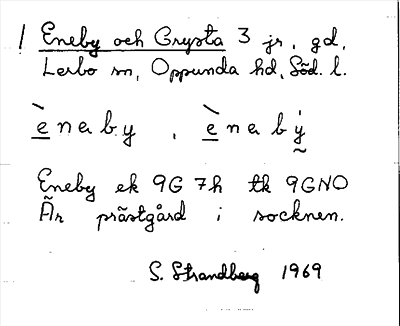 ! Eneby och Crypta 3 jr, gd,
Lerbo sn, Oppunda hd, Söd. l.
è n e b y , è n e b ẏ
Eneby ek 9G 7h tk 9GNO
Är prästgård i socknen.
S. Strandberg 1969